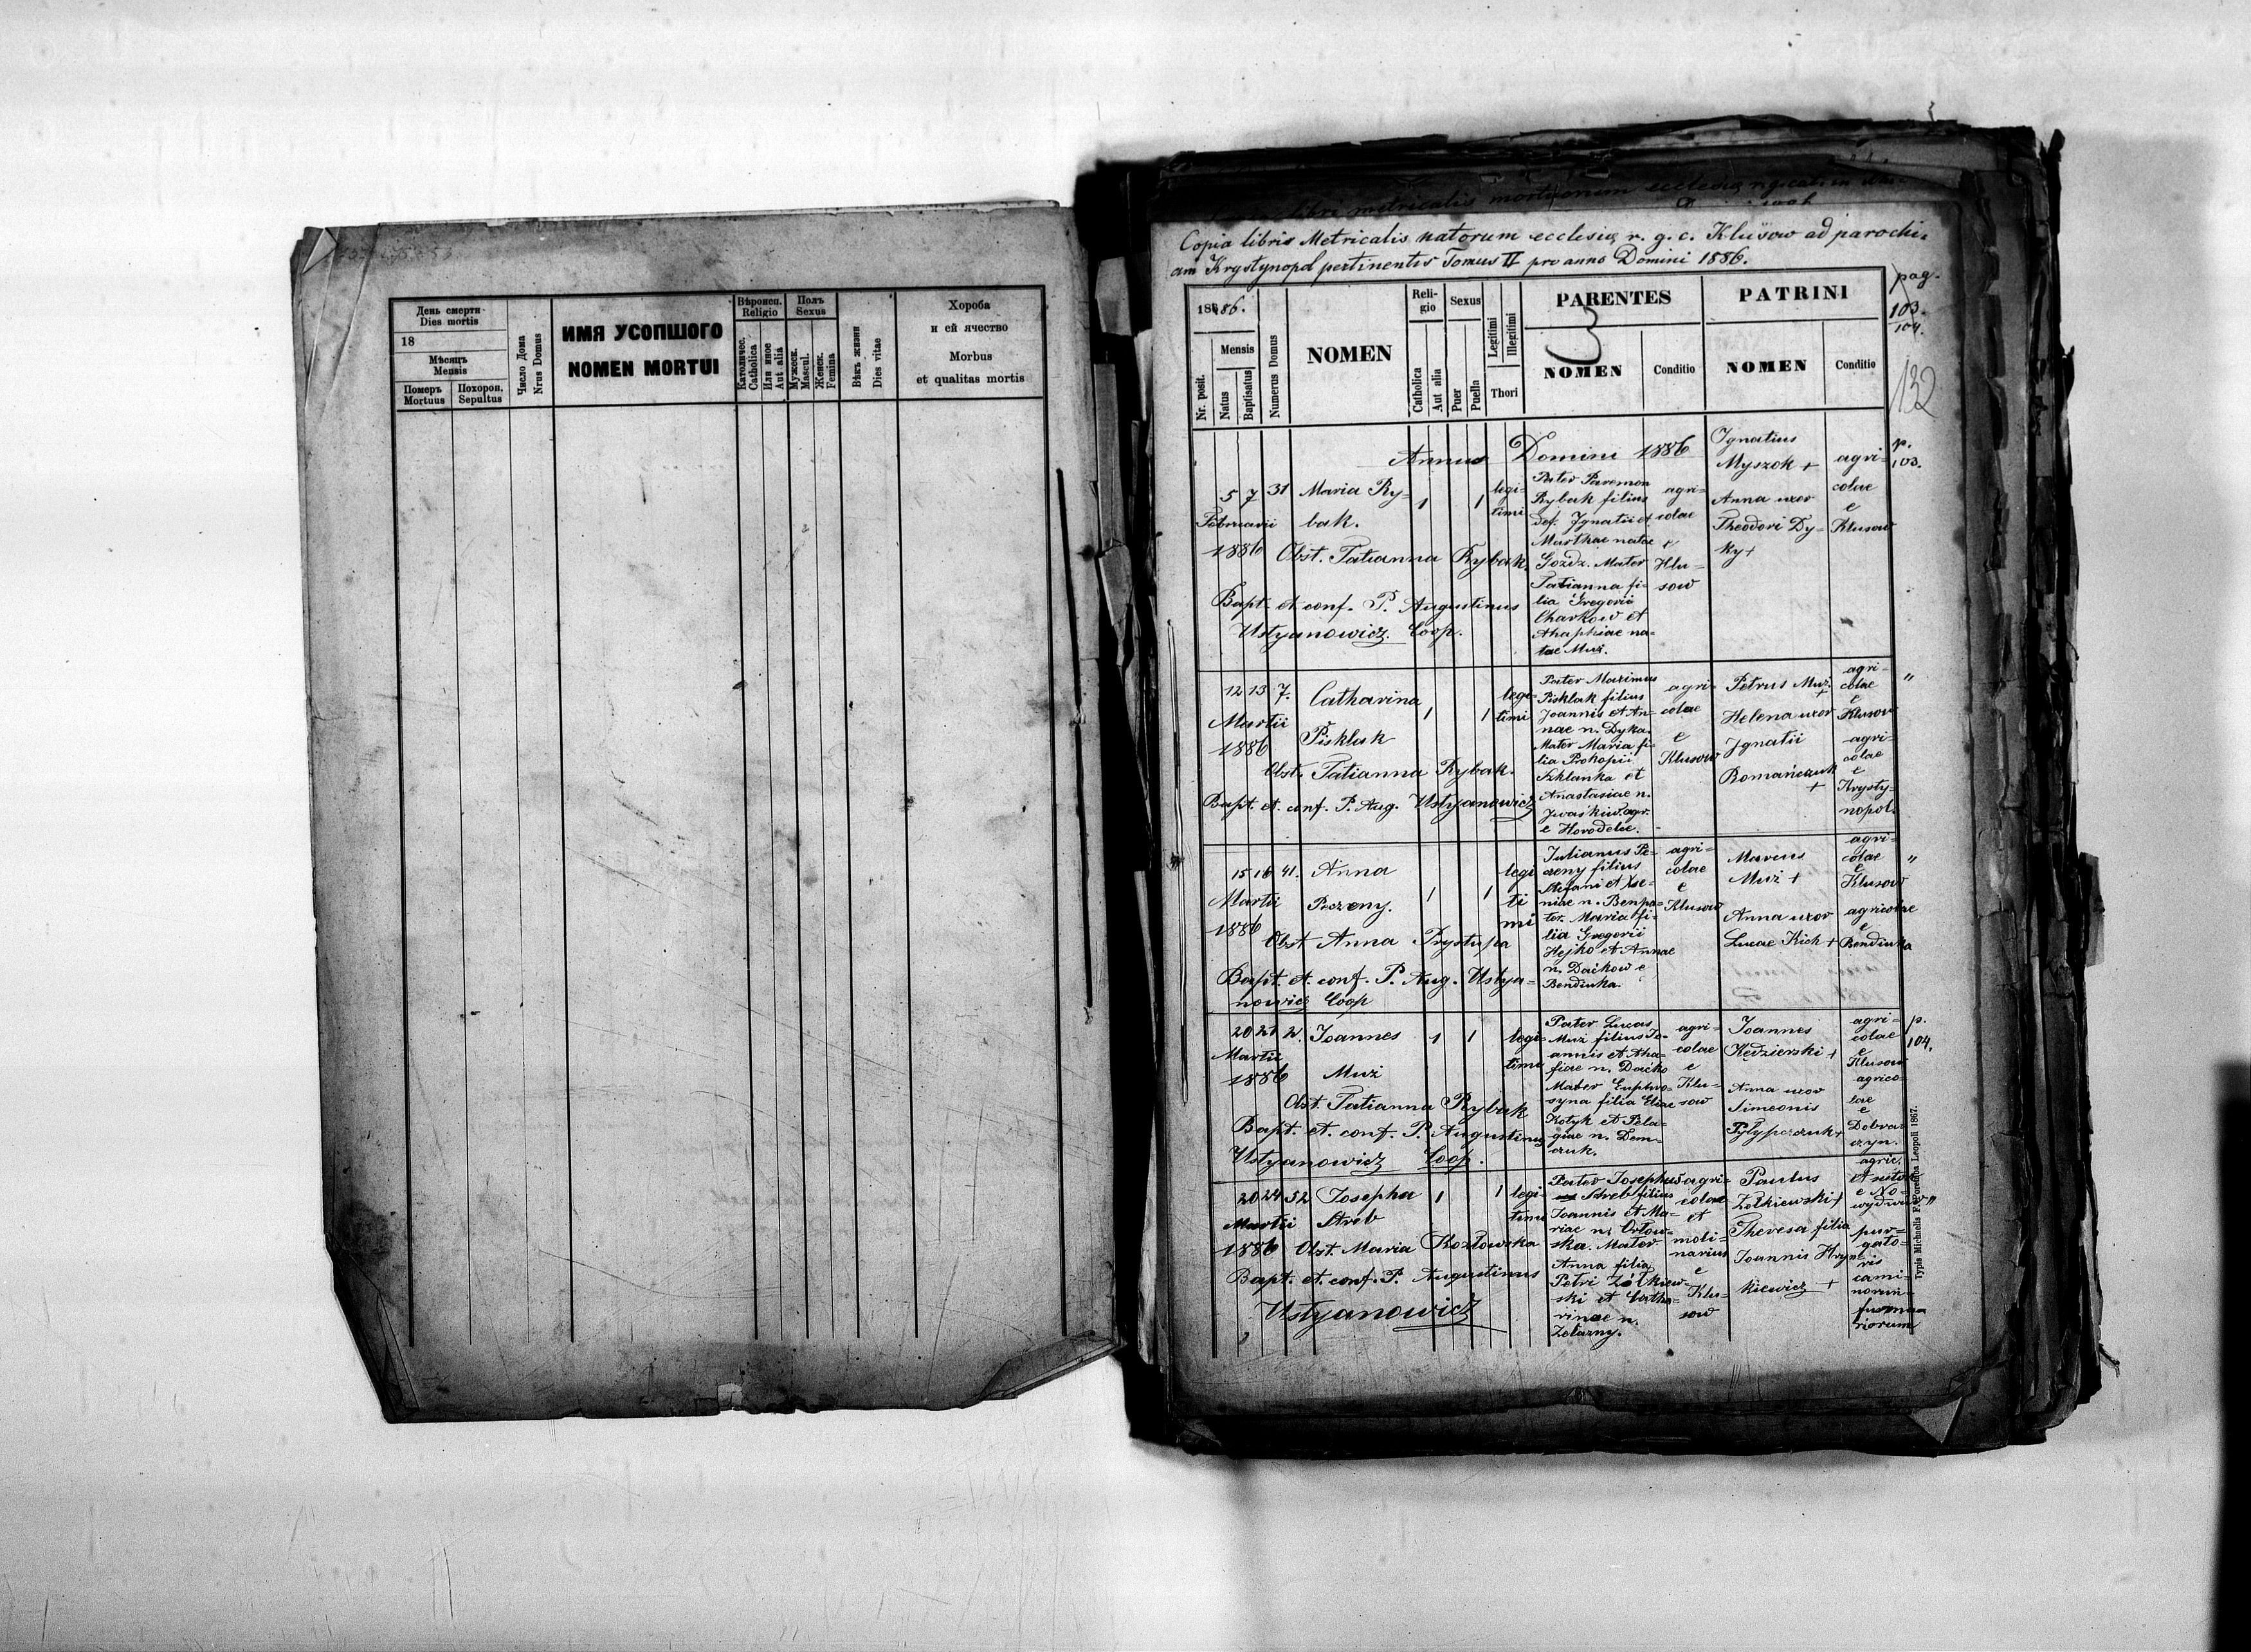 День смерти
Dies mortis
18
Мѣсяцъ
Mensis
Померъ
Mortuus
Похорон.
Sepultus
Число Дома
Nrus Domus
ИМЯ УСОПШОГО
NOMEN MORTUI
Вѣроисп.
Religio
Католичес.
Catholica
Или иное
Aut alia
Полъ
Sexus
Мужеск.
Mascul.
Женск.
Femina
Вѣкъ жизни
Dies vitae
Хороба
и ей ячество
Morbus
et qualitas mortis
libri metricalis mortuorum ecclesiae
Copia libris Metricalis natorum ecclesiae r. g. c. Klusow ad parochi=
am Krystynopol pertinentis Tomus II pro anno Domini 1886.
pag.
103.
104.
132
1886.
Nr. posit.
Mensis
Natus
Baptisatus
Numerus Domus
NOMEN
Reli-
gio
Catholica
Aut alia
Sexus
Puer
Puella
Legitimi
Illegitimi
Thori
PARENTES
3
NOMEN
Conditio
PATRINI
NOMEN
Conditio
Annus Domini 1886
p.
103.
5 7 31 Maria Ry=
bak.
Februarii
1886
1 1
legi-
timi
Obst. Tatianna Rybak.
Bapt. et conf. P. Augustinus
Ustyanowicz. Coop.
Pater Paremon
Rybak filius
def. Ignatii et
Marthae natae
Gozdz. Mater
Tatianna fi=
lia Gregorii
Charkow et
Ahaphiae na=
tae Muz.
agri-
colae
e
Klu-
sow
Ignatius
Myszok +
Anna uxor
Theodori Dy=
ky +
agri=
colae
e
Klusow
12 13 7. Catharina
Pisklak
Martii
1886
1 1
legi=
timi
Obst. Tatianna Rybak.
Bapt. et. conf. P. Aug. Ustyanowicz
Pater Maximus
Pisklak filius
Joannis et An=
nae n. Dyka.
Mater Maria fi=
lia Prokopii
Szklanka et
Anastasiae n.
Jwaskiw agr.
e Horodelec.
agri-
colae
e
Klusow
Petrus Muz. +
Helena uxor
Ignatii
Romańczuk
+
agri-
colae
e
Klusow
agri-
colae
e
Krysty-
nopol.
"
15 16 41. Anna
Peczeny.
Martii
1886
1 1
legi
ti
mi
Obst. Anna Prystupa
Bapt. et. conf. P. Aug. Ustya=
nowicz Coop
Julianus Pe-
czeny filius
Stefani et Xe-
niae n. Ben
Maria fi-
lia Gregorii
Hejko et Annae
n. Daćkow e
Bendiuha.
agri-
colae
e
Klusow
Marcus
Muz +
Anna uxor
Lucae Kich +
agri=
colae
e
Klusow
agricolae
e
Bendiuha
"
20 21 2. Joannes
Muz
Martii
1886
1 1
legi=
timi
Obst. Tatianna Rybak
Bapt. et. conf. P. Augustinus
Ustyanowicz Coop.
Pater Lucas
Muz filius Jo-
annis et Aha=
fiae n. Daćko
Mater Euphro=
syna filia Eliae
Kotyk et Pela=
giae n. Dem=
czuk.
agri-
colae
e
Klu-
sow
Joannes
Kędzierski +
Anna uxor
Simeonis
Pylypczuk +
agri-
colae
e
Klusow
agrico-
lae
e
Dobra=
czyn.
p.
104.
20 24 52 Josepha
Streb
Martii
1886
1 1
legi-
timi
Obst. Maria Kozłowska
Bapt. et. conf. P. Augustinus
Ustyanowicz
Pater Josephus
Streb filius
Joannis et Ma-
riae n. Orlow-
ska. Mater
Anna filia
Petri Zółkiew-
ski et Catha-
rinae n.
Zelazny.
agri-
colae
et
moli-
narius
e
Klu-
sow
Paulus
Zołkiewski +
Theresa filia
Joannis Hryn
kiewicz +
agric.
et sutor
e No-
wydwor
pur-
gato-
ris
cami=
norum
fuma
riorum
"
Typis Michaelis F. Poremba Leopoli 1867.